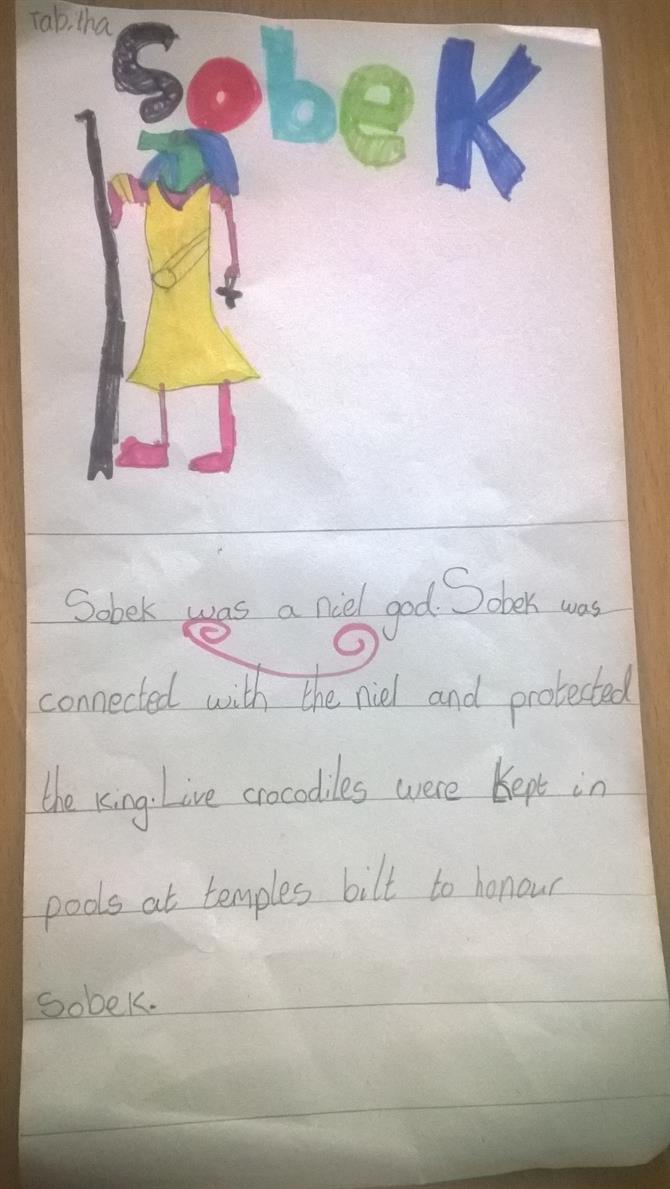 Tabitha
Sobek
Sobek was a niel god. Sobek was
connected with the niel and protected
the king. Live crocodiles were kept in
pools at temples bilt to honour
Sobek.